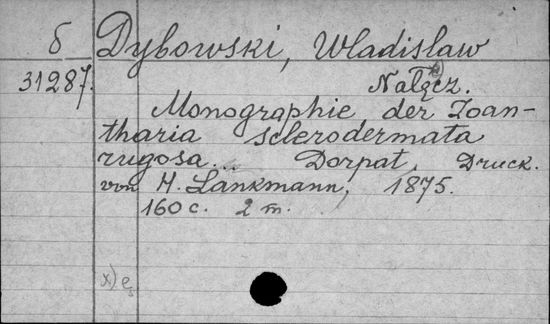 б Dybowski, Wladisław
31287. Nałęcz. x)
Monographie der Zoan-
tharia sclerodermata
rugosa... Dorpat, Druck.
von H. Laakmann, 1875.
160 с. 2 т.
x) ę